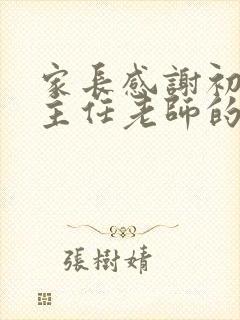 家長感謝初
主任老師的
張樹婧